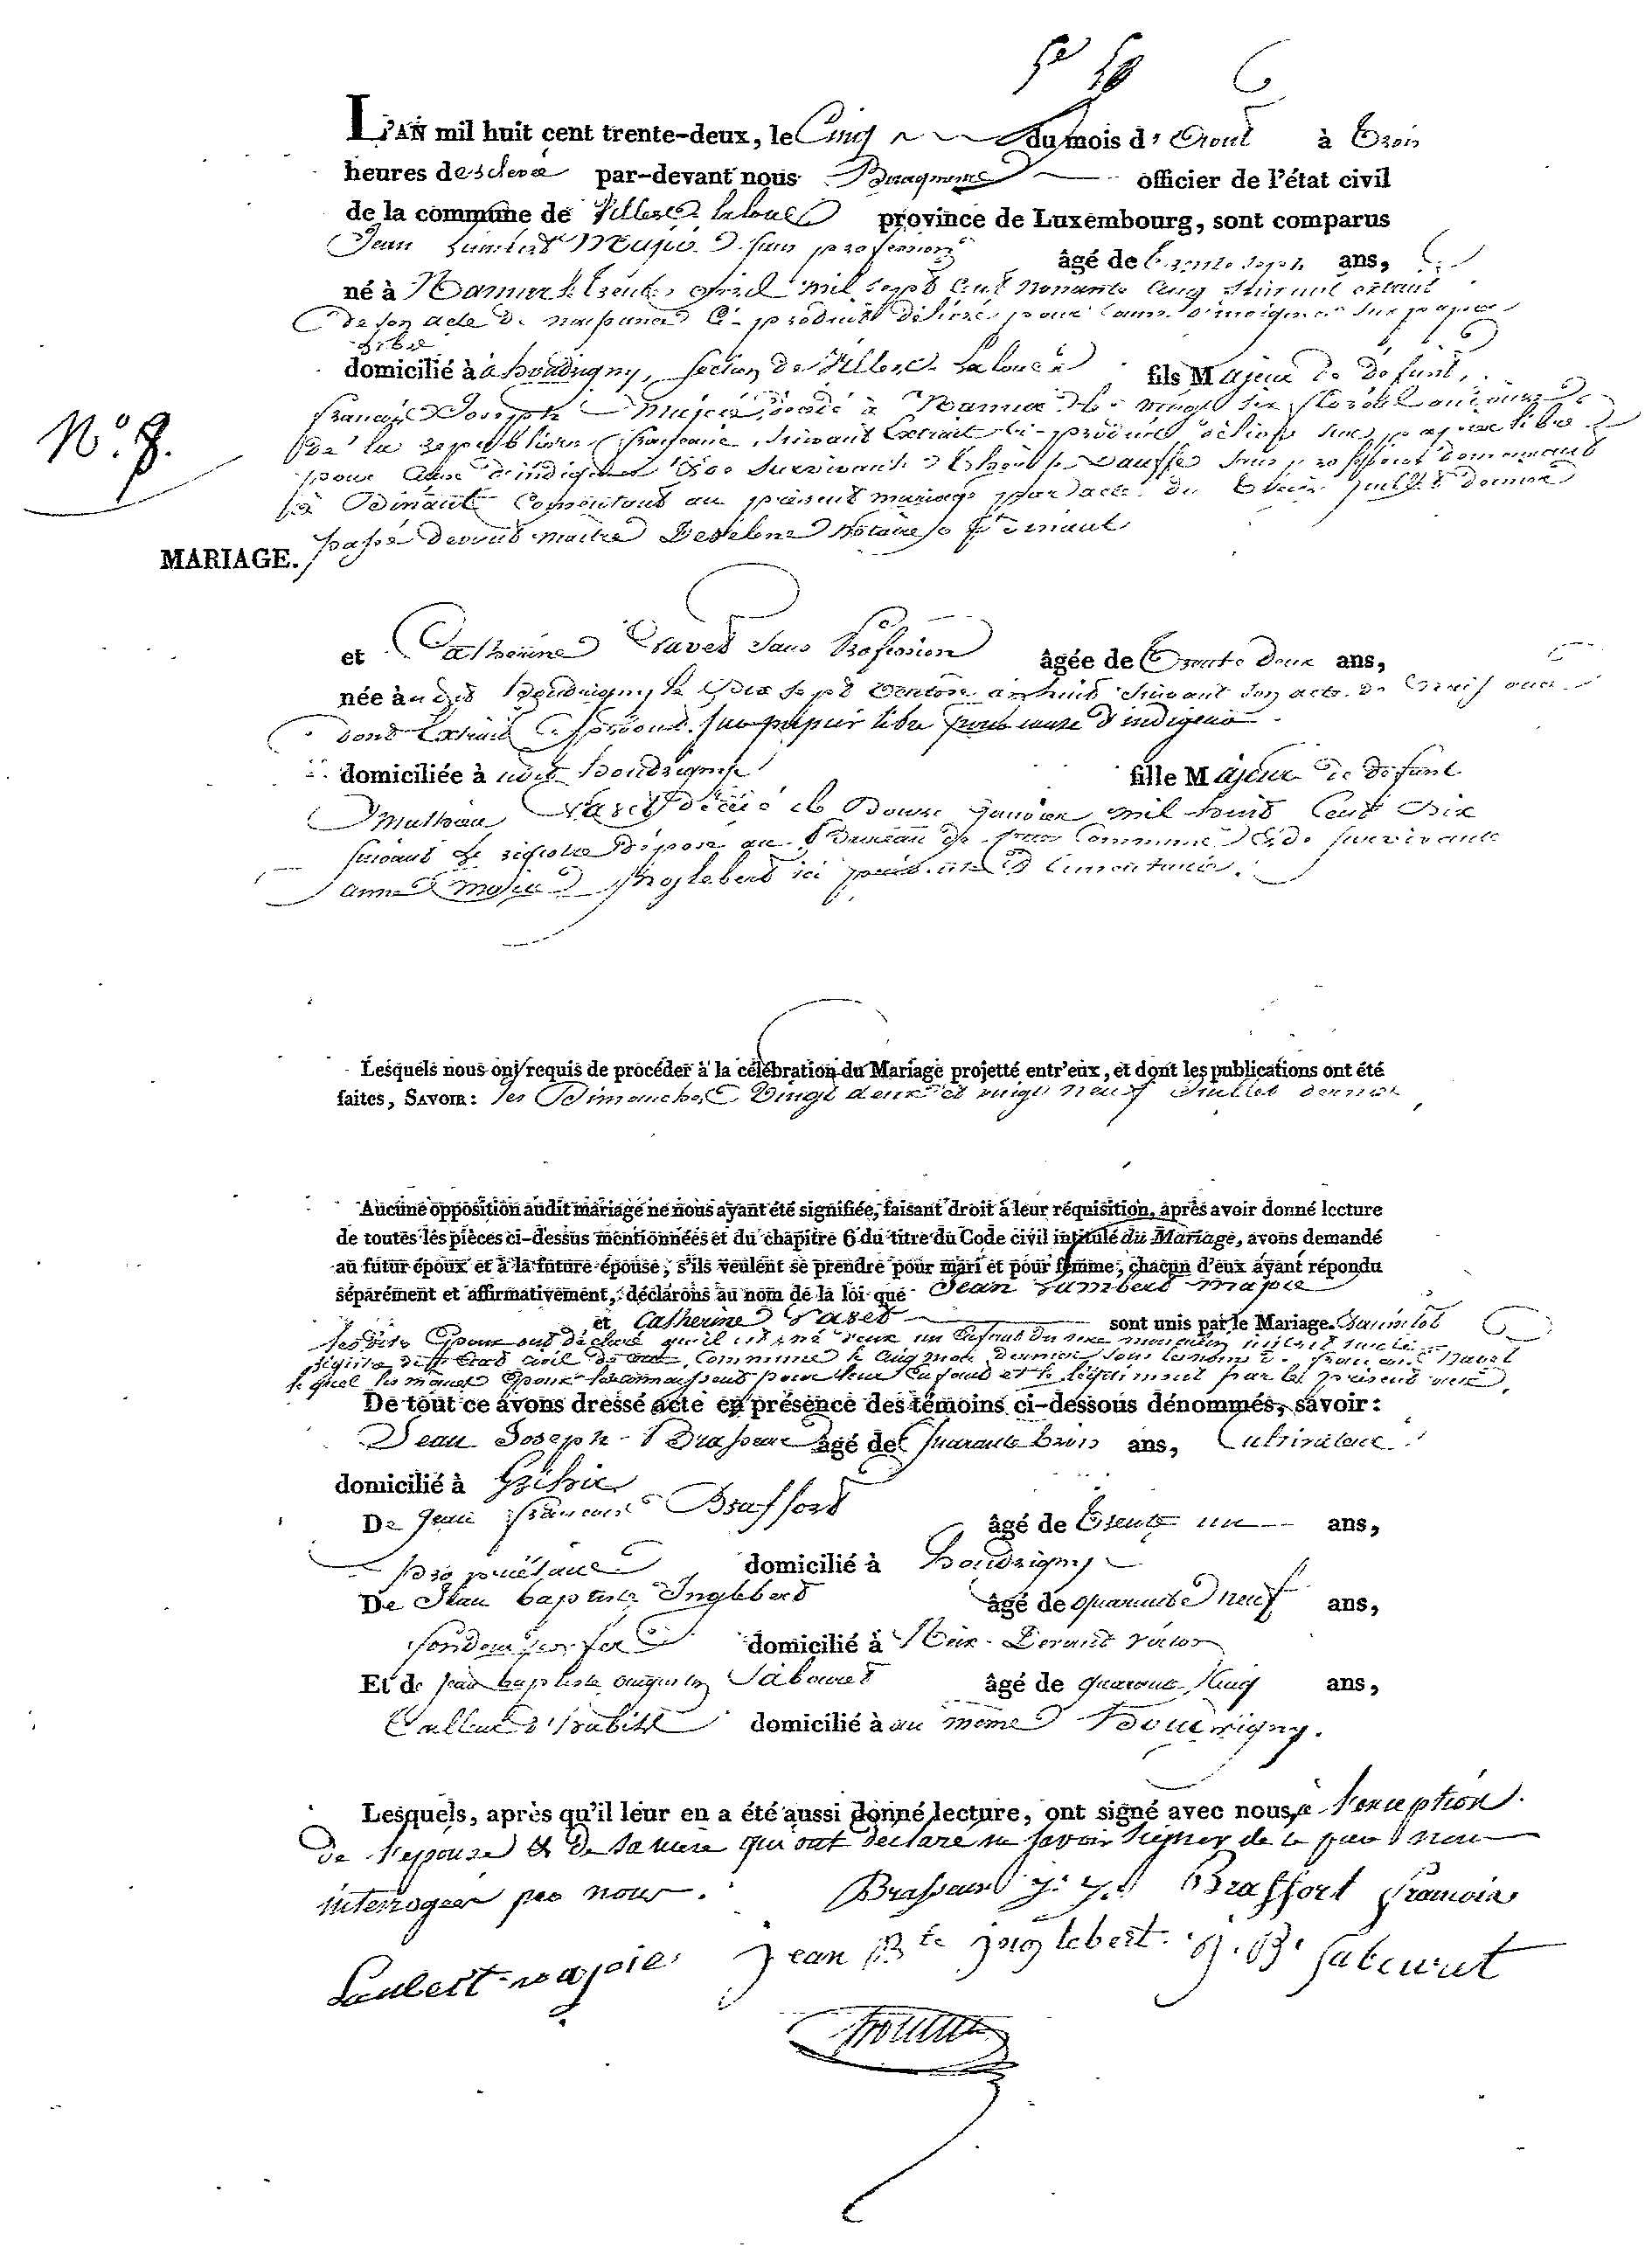 L'AN mil huit cent trente-deux, le Cinq du mois d'Aout à Trois
heures de relevée par-devant nous officier de l'état civil
de la commune de Villers Laloue province de Luxembourg, sont comparus
Jean Lambert Majie sans profession âgé de trente sept ans,
né à Namur le trente avril mil sept cent nonante cinq suivant extrait
de son acte de naissance ci-produit délivré pour cause d'indigence sur papier
libre
domicilié à à houdrigny, section de Villers Laloue fils Majeur de défunt
N° 8.
francois Joseph Majie décédé à Namur le vingt six floréal an onze
de la republique française, suivant Extrait ci-produit délivré sur papier libre
pour cause d'indigence & de survivante sans profession demeurant
à Dinant consentant au présent mariage par acte du treize juillet dernier
MARIAGE.
passé devant maitre notaire à Dinant
et Catherine Pravet sans Profession âgée de Trente Deux ans,
née à udit houdrigny le Dix sept Ventose an huit suivant son acte de naissance
dont Extrait sur papier libre pour cause d'indigence
domiciliée à udit houdrigny fille Majeure de défunt
Mathieu décédé le Douze Janvier mil huit Cent Dix
suivant le registre déposé au Bureau de cette Commune & de survivante
anne Marie Inglebert ici présente & consentante.
Lesquels nous ont requis de procéder à la célébration du Mariage projetté entr'eux, et dont les publications ont été
faites, SAVOIR : les Dimanches Vingt deux et vingt neuf Juillet dernier
Aucune opposition audit mariage ne nous ayant été signifiée, faisant droit à leur réquisition, après avoir donné lecture
de toutes les pièces ci-dessus mentionnées et du chapitre 6 du titre du Code civil intitulé du Mariage, avons demandé
au futur époux et à la future épouse, s'ils veulent se prendre pour mari et pour femme, chacun d'eux ayant répondu
séparément et affirmativement, déclarons au nom de la loi que Jean Lambert Majie
et Catherine sont unis par le Mariage. aussitot
lesdits Epoux ont déclaré qu'il est né d'eux un Enfant du sexe masculin inscrit sur le
registre de l'Etat civil de cette Commune le cinq mai dernier sous les noms de francois
lequel les mêmes Epoux reconnaissent pour leur Enfant et le légitiment par le présent acte.
De tout ce avons dressé acte en présence des témoins ci-dessous dénommés, savoir :
Jean Joseph Brasseur âgé de quarante trois ans, Cultivateur
domicilié à
De Jean francois Braffort âgé de Trente un ans,
propriétaire domicilié à houdrigny
De Jean baptiste Inglebert âgé de quarante neuf ans,
domicilié à Meix Devant virton
Et de jean baptiste augustin Sabouret âgé de quarante Cinq ans,
Tailleur d'habits domicilié à au même houdrigny.
Lesquels, après qu'il leur en a été aussi donné lecture, ont signé avec nous à l'exception
de l'épouse & de sa mère qui ont déclaré ne savoir signer de ce
interrogées par nous.
Brasseur J. J. Braffort francois
Lanbert majoie jean Bte jnglebert. J. B. Sabouret